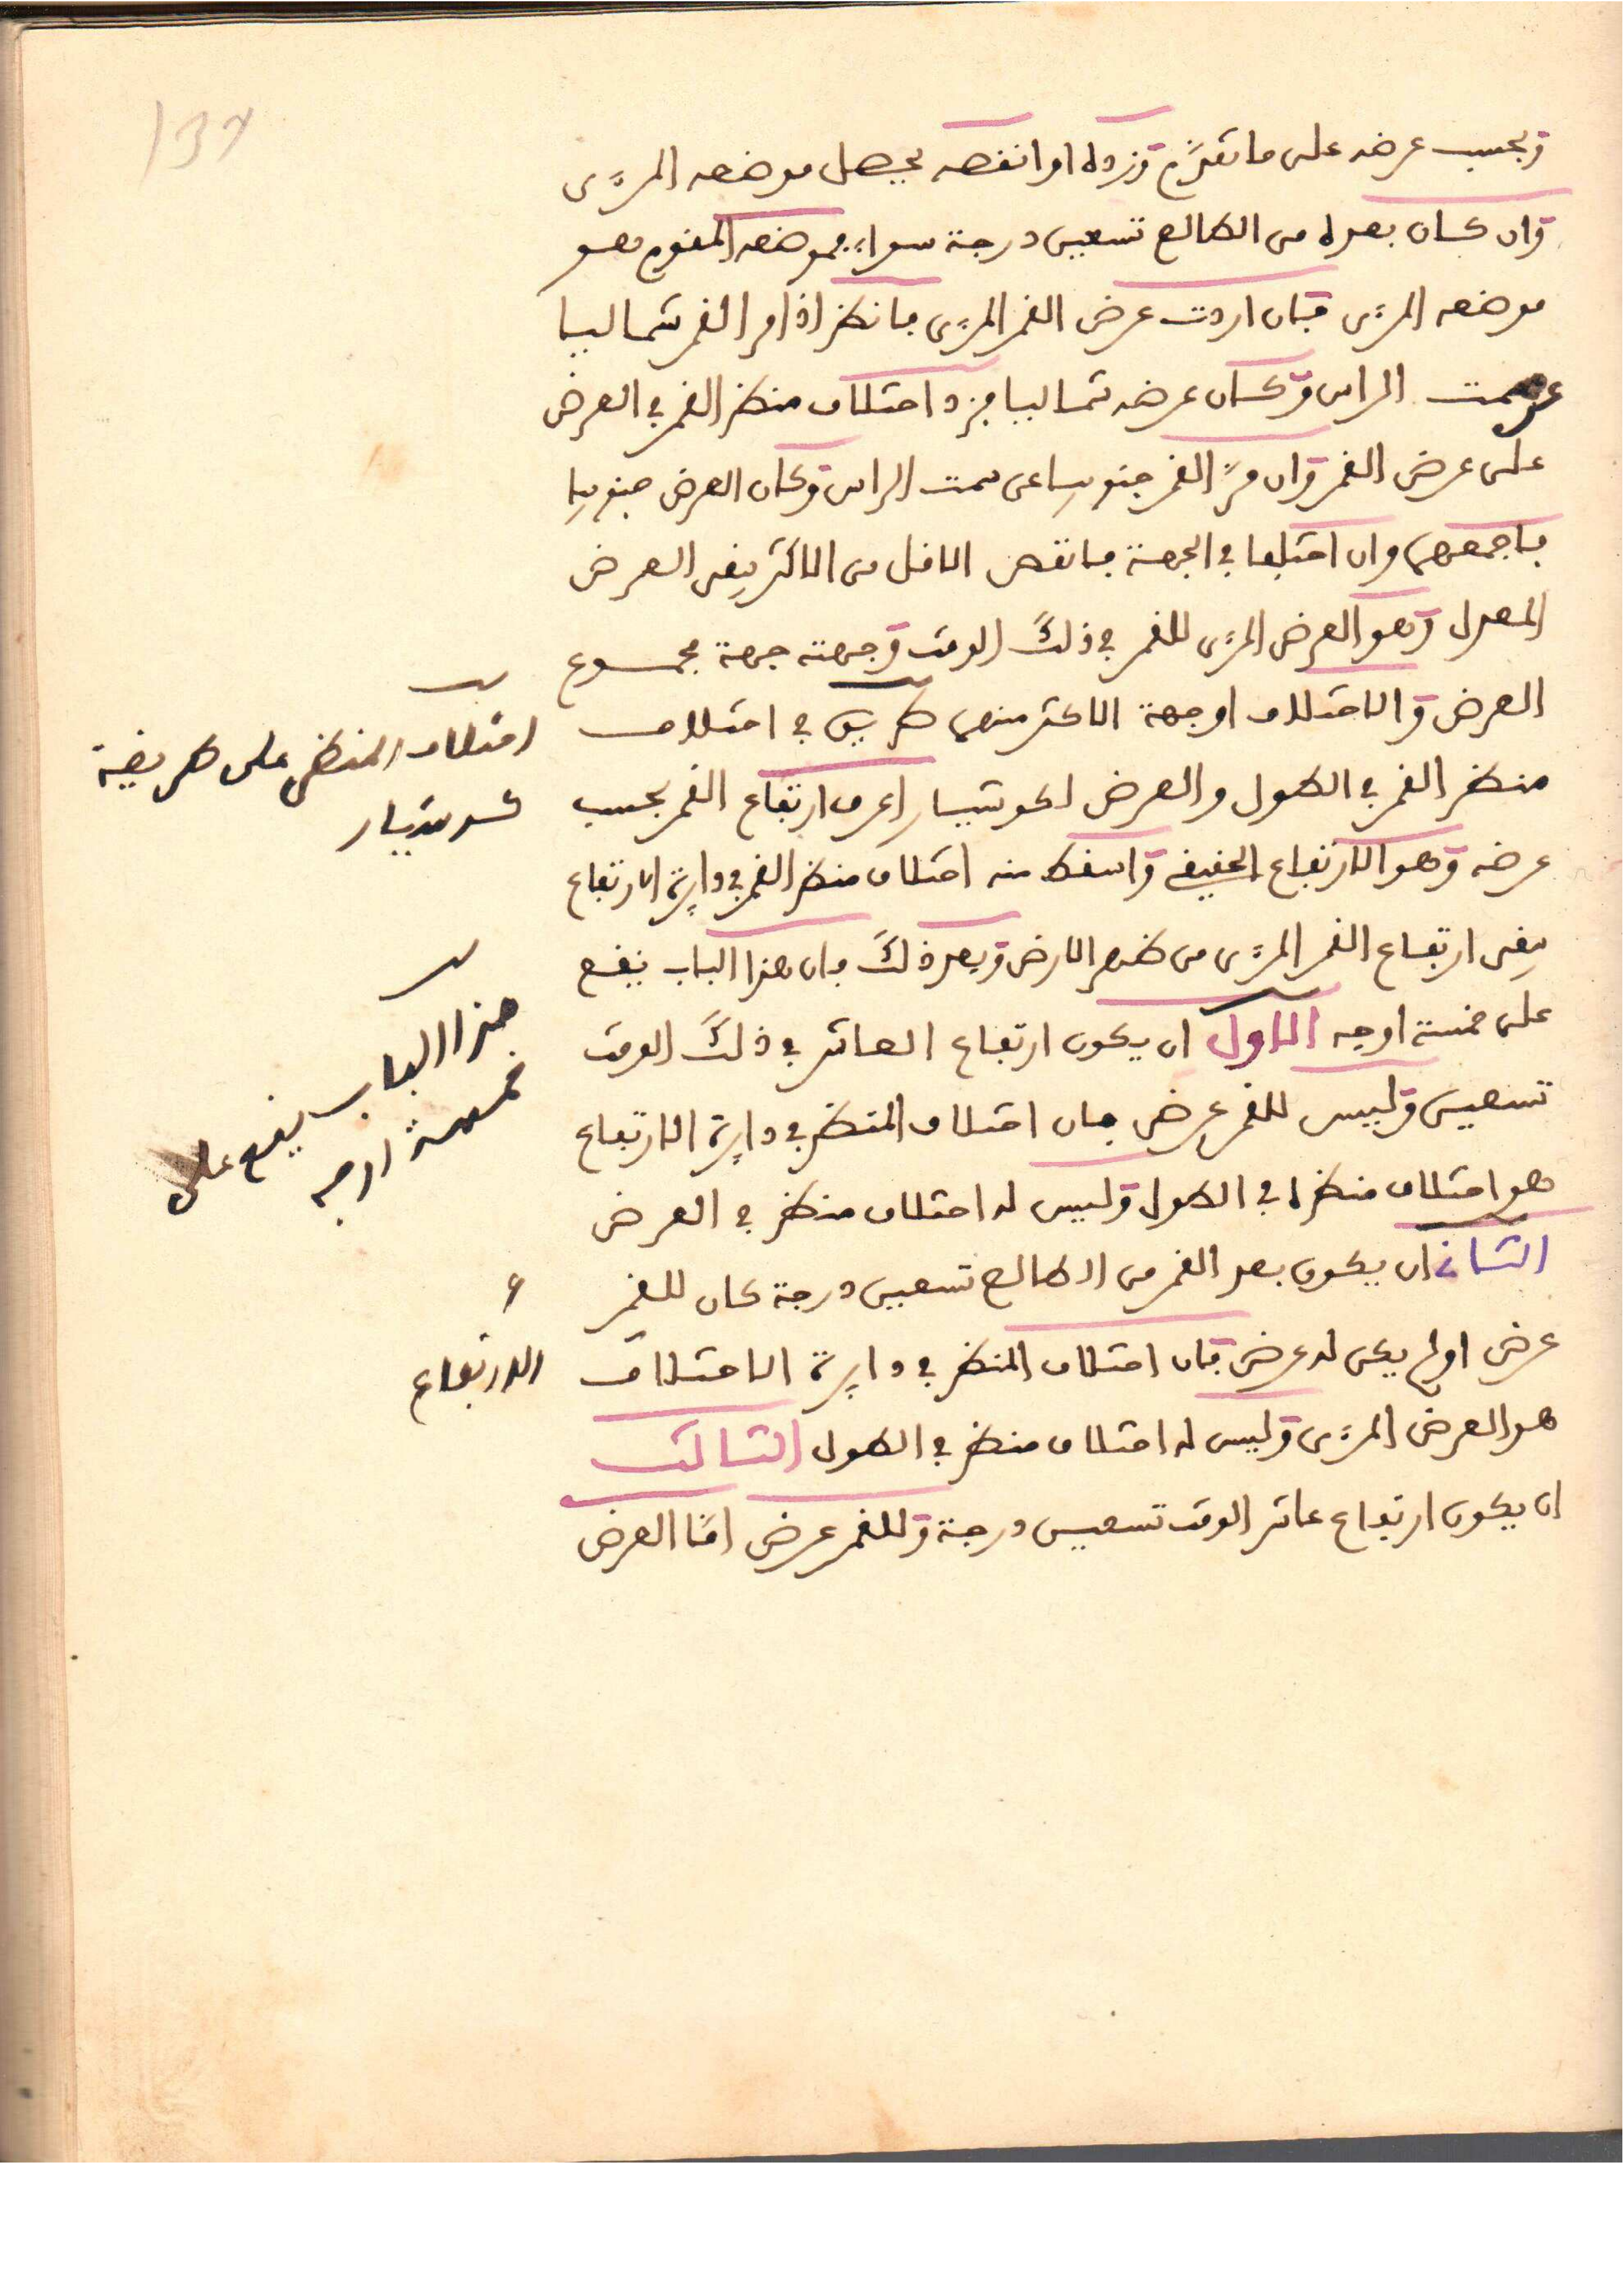 137
وبحسب عرضه على ما تقدّم وزده او انقصه يحصل موضعه المرءى
وان كان بعده من الطالع تسعين درجة سواء فموضعه المقوم هو
موضعه المرءى فان اردت عرض القمر المرءى فانظر اذا مر القمر شماليا
عن سمت الراس وكان عرضه شماليا فزد اختلاف منظر القمر في العرض
على عرض القمر وان مرّ القمر جنوبيا عن سمت الراس وكان العرض جنوبيا
فاجمعهما وان اختلفا في الجهة فانقص الاقل من الاكثر يبقى العرض
المعدل وهو العرض المرءى للقمر في ذلك الوقت وجهته جهة مجموع
العرض والاختلاف او جهة الاكثر منهما طريق في اختلاف
منظر القمر في الطول والعرض لكوشيار اعرف ارتفاع القمر بحسب
عرضه وهو الارتفاع الحقيقي واسقط منه اختلاف منظر القمر في دايرة الارتفاع
يبقى ارتفاع القمر المرءى من ظهر الارض وبعد ذلك فان هذا الباب يقع
على خمسة اوجه الاول ان يكون ارتفاع العاشر في ذلك الوقت
تسعين وليس للقمر عرض فان اختلاف المنظر في دايرة الارتفاع
هو اختلاف منظره في الطول وليس له اختلاف منظر في العرض
الثاني ان يكون بعد القمر من الطالع تسعين درجة كان للقمر
عرض او لم يكن له عرض فان اختلاف المنظر في دايرة الاختلاف
هو العرض المرءى وليس له اختلاف منظر في الطول الثالث
ان يكون ارتفاع عاشر الوقت تسعين درجة وللقمر عرض امّا العرض
اختلاف المنظر على طريقة
كوشيار
هذا الباب يقع على
خمسة اوجه
الارتفاع